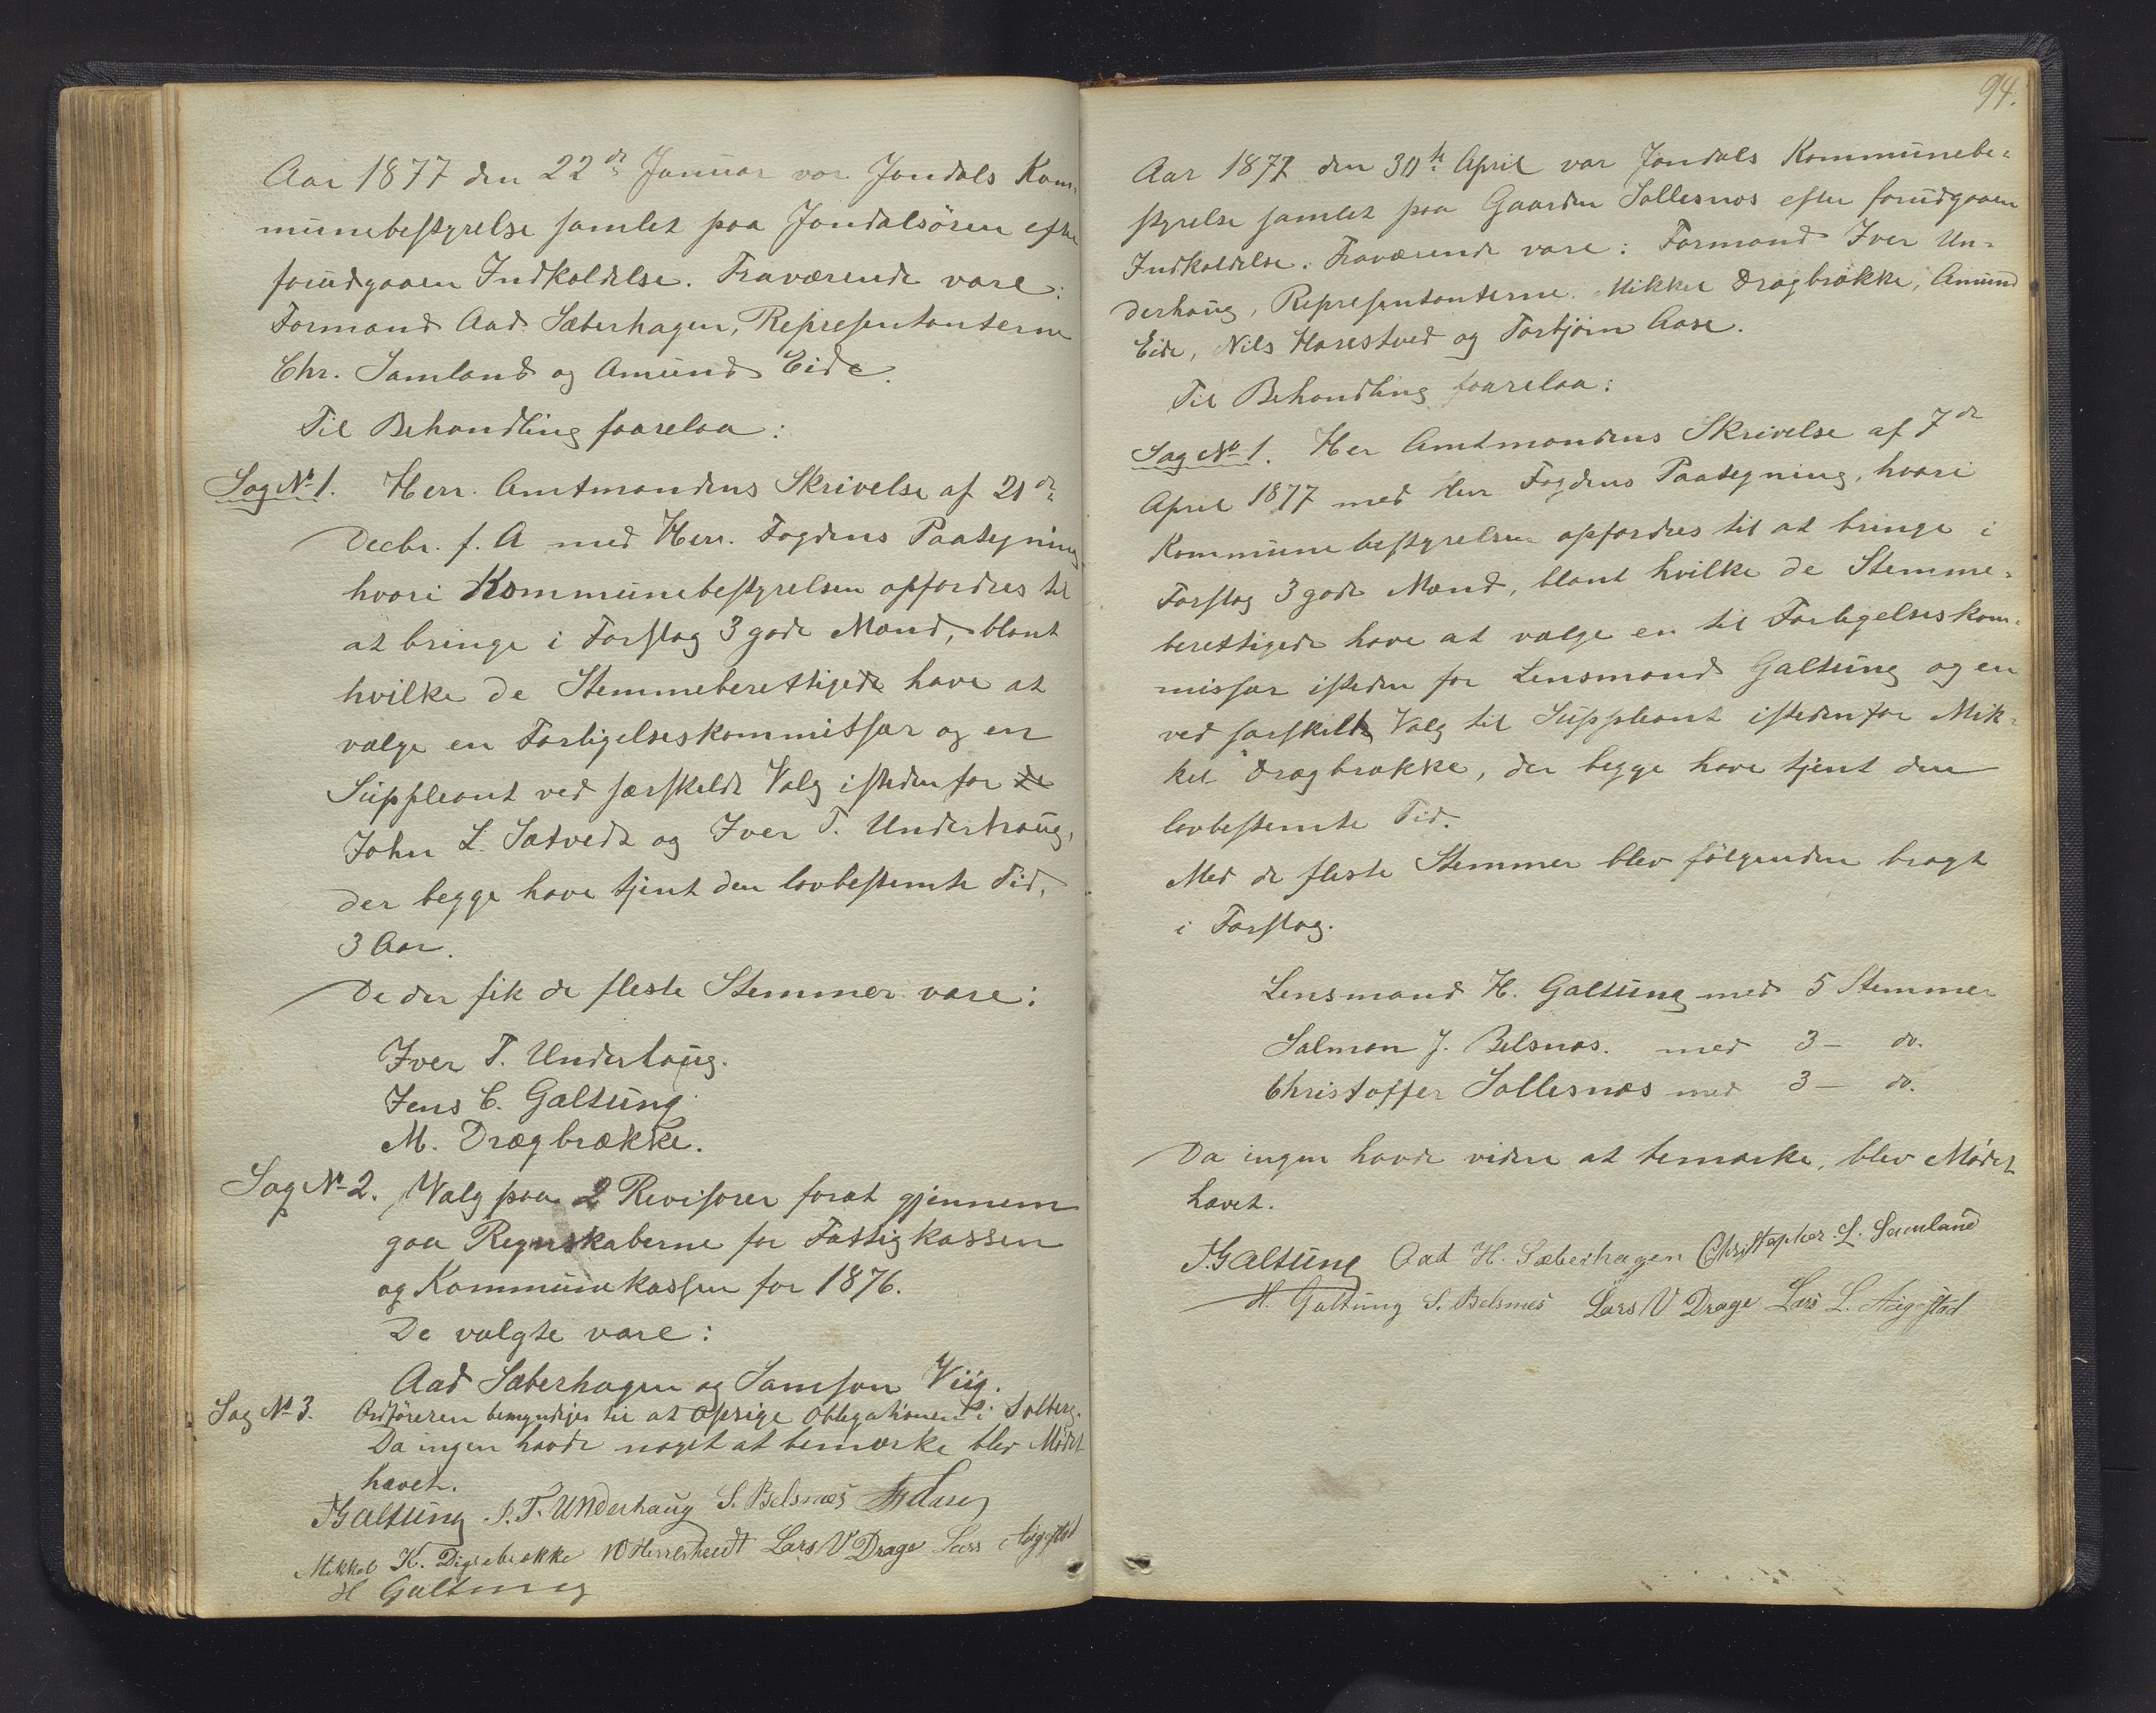 Aar 1877 den 22de Januar var Jondals Kom-
munebestyrelse samlet paa Jondalsören efter
forudgaaen Indkaldelse. Fraværende vare:
Formand Aad. Sæberhagen, Repræsentanterne
Chr. Samland og Amund Eide.
Til Behandling foarelaa:
Sag No 1. Herr. Amtmandens Skrivelse af 21de
Decbr. f. A med Herr. Fogdens Paategning
hvori Kommunebestyrelsen opfordres til
at bringe i Forslag 3 gode Mænd, blant
hvilke de Stemmeberettigede have at
vælge en Forligelseskommissær og en
Suppleant ved særskeldt Valg istedenfor de
John L. Sætvedt og Iver T. Underhaug,
der begge have tjent den lovbestemte Tid,
3 Aar.
De der fik de fleste Stemmer vare:
Iver T. Underhaug.
Jens C. Galtung
M. Drægbrække.
Sag No 2. Valg paa 2 Revisorer forat gjennem
gaa Regnskaberne for Fattigkassen
og Kommunekassen for 1876.
De valgte vare:
Aad Sæberhagen og Samson Viig.
Sag No 3. Ordföreren bemyndiges til at opsige Obligationen i Solberg.
Da ingen havde noget at bemærke blev Mödet
hævet.
JGaltung I. T. Underhaug S. Belsnæs
Mikkel K. Digrebrække Lars V Drage Lars Aigestad
H Galtung
94.
Aar 1877 den 30te April var Jondals Kommunebe-
styrelse samlet paa Gaarden Sollesnæs efter forudgaaen
Indkaldelse. Fraværende vare: Formand Iver Un-
derhaug, Repræsentanterne. Mikkel Drægbrække, Amund
Eide, Nils Herestved og Torbjörn Aase.
Til Behandling foarelaa:
Sag No 1. Her Amtmandens Skrivelse af 7de
April 1877 med Herr Fogdens Paategning, hvori
Kommunebestyrelsen opfordres til at bringe i
Forslag 3 gode Mænd, blant hvilke de Stemme-
berettigede have at vælge en til Forligelseskom-
missær isteden for Lensmand Galtung og en
ved særskilt Valg til Suppleant istedenfor Mik-
kel Drægbrække, der begge have tjent den
lovbestemte Tid.
Med de fleste Stemmer blev fölgenden bragt
i Forslag.
Lensmand H. Galtung med 5 Stemmer
Salmon J. Belsnæs. med 3 - do.
Christoffer Sollesnæs med 3 - do.
Da ingen havde videre at bemærke, blev Mödet
hævet.
J.Galtung Aad H. Sæberhagen Christopher L. Samland
H. Galtung S. Belsnes Lars V Drage Lars L. Aigestad